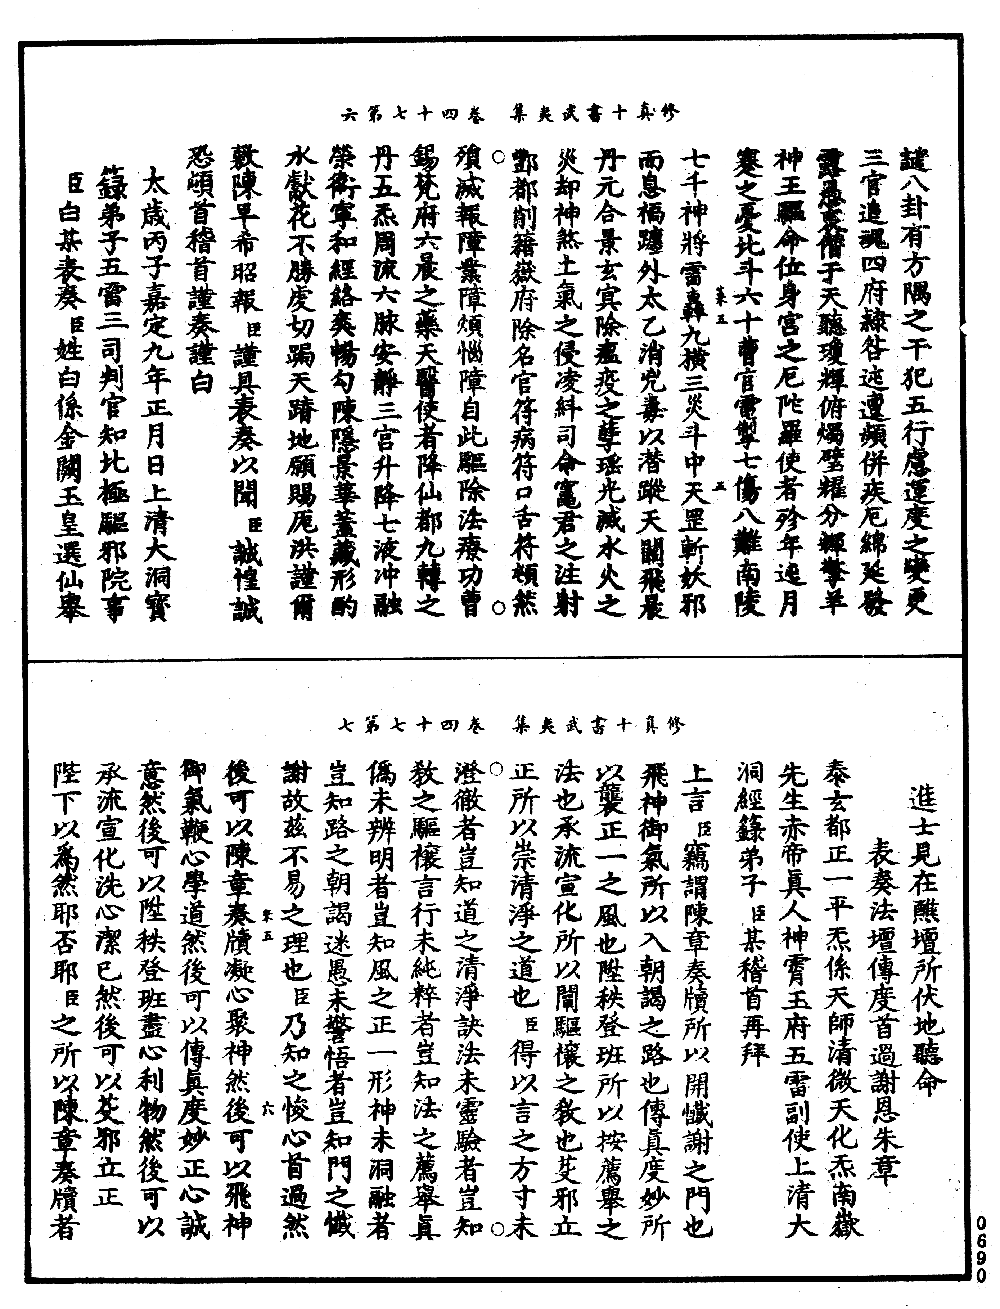 修真十書武夷集　卷四十七第六
譴八卦有方隅之干犯五行慮運度之變更
三官追魂四府隸咎迍邅頻併疾厄綿延發
露愚衷僭于天聽瓊輝俯燭璧耀分輝擎羊
神王驅命位身宮之厄陀羅使者殄年逺月
蹇之憂北斗六十曹官電掣七傷八難南陵
七千神將雷轟九橫三災斗中天罡斬妖邪
而息禍躔外太乙消兇毒以潛蹤天關飛晨
丹元合景玄冥除瘟疫之孽瑶光滅水火之
災却神煞土氣之侵凌糾司命竈君之注射
酆都削籍嶽府除名官符病符口舌符頓然
殞滅報障業障煩惱障自此驅除法療功曹
錫梵府六晨之藥天醫使者降仙都九轉之
丹五炁周流六脉安靜三宮升降七液冲融
榮衛寧和經絡爽暢勾陳隱景華蓋藏形酌
水獻花不勝虔切跼天蹐地願賜厖洪謹爾
敷陳早希昭報臣謹具表奏以聞臣誠惶誠
恐頓首稽首謹奏謹白
太歲丙子嘉定九年正月日上清大洞寶
籙弟子五雷三司判官知北極驅邪院事
臣白某表奏臣姓白係金闕玉皇選仙舉
修真十書武夷集　卷四十七第七
進士見在醮壇所伏地聽命
表奏法壇傳度首過謝恩朱章
泰玄都正一平炁係天師清微天化炁南嶽
先生赤帝真人神霄玉府五雷副使上清大
洞經籙弟子臣某稽首再拜
上言臣竊謂陳章奏牘所以開懺謝之門也
飛神御氣所以入朝謁之路也傳真度妙所
以襲正一之風也陞秩登班所以按薦舉之
法也承流宣化所以闡驅禳之教也芟邪立
正所以崇清淨之道也臣得以言之方寸未
澄徹者豈知道之清淨訣法未靈驗者豈知
教之驅禳言行未純粹者豈知法之薦舉真
僞未辨明者豈知風之正一形神未洞融者
豈知路之朝謁迷愚未警悟者豈知門之懺
謝故茲不易之理也臣乃知之悛心首過然
後可以陳章奏牘凝心聚神然後可以飛神
御氣鞭心學道然後可以傳真度妙正心誠
意然後可以陞秩登班盡心利物然後可以
承流宣化洗心潔已然後可以芟邪立正
陛下以爲然耶否耶臣之所以陳章奏牘者
0690